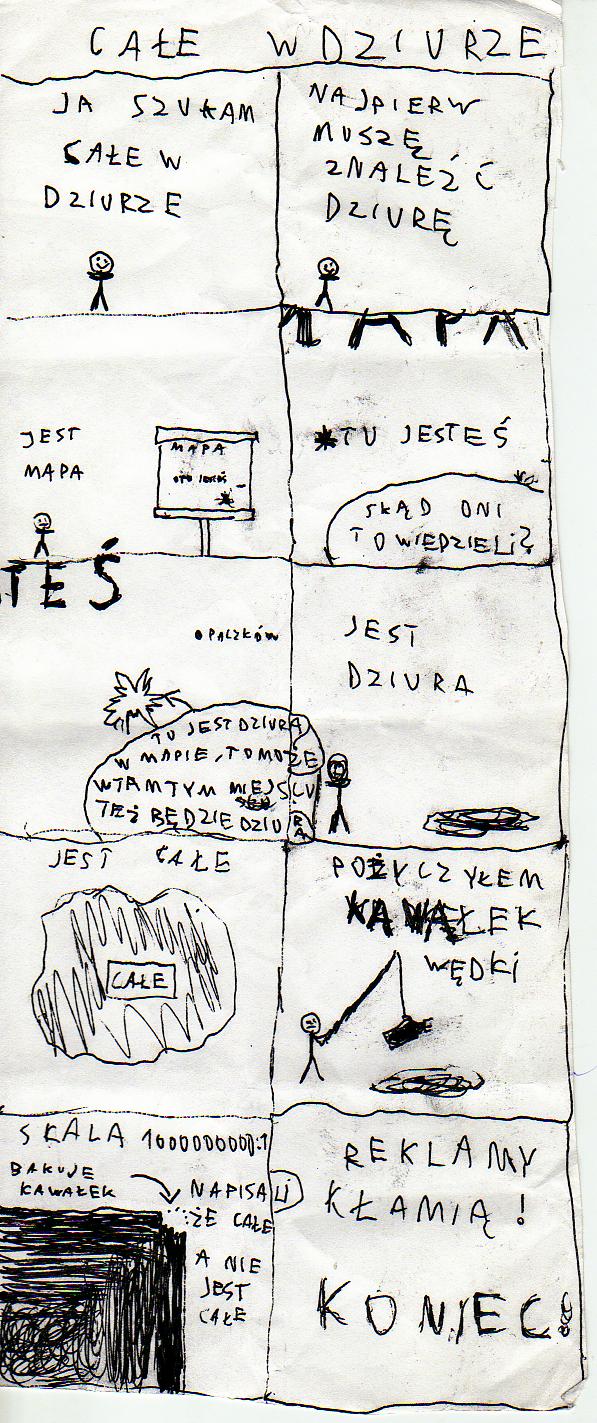 CAŁE W DZIURZE
JA SZUKAM
CAŁE W
DZIURZE
NAJPIERW
MUSZĘ
ZNALEŹĆ
DZIURĘ
JEST
MAPA
MAPA
MAPA
TU JESTEŚ
SKĄD ONI
TO WIEDZIELI?
TEŚ
OPACZKÓW
TU JEST DZIURA
W MAPIE, TO MOŻE
W TAMTYM MIEJSCU
TEŻ BĘDZIE DZIURA
JEST
DZIURA
JEST CAŁE
CAŁE
POŻYCZYŁEM
KAWAŁEK
WĘDKI
SKALA 1000000000:1
BAKUJE
KAWAŁEK
NAPISALI
ŻE CAŁE
A NIE
JEST
CAŁE
REKLAMY
KŁAMIĄ!
KONIEC!